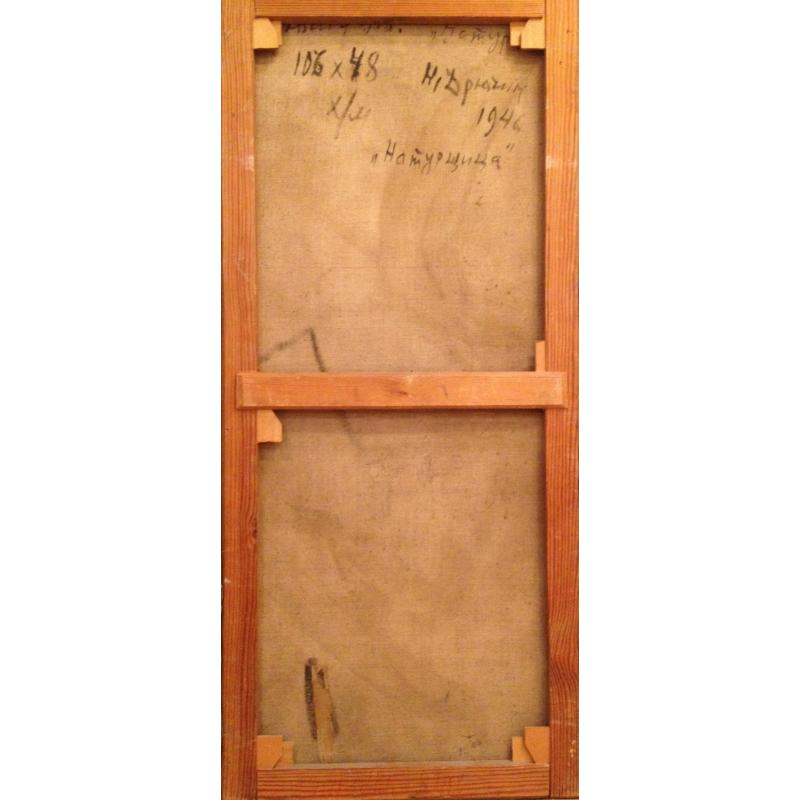 „Натур
106 x 48 Н. Дрючин
х/м 1946
„Натурщица"